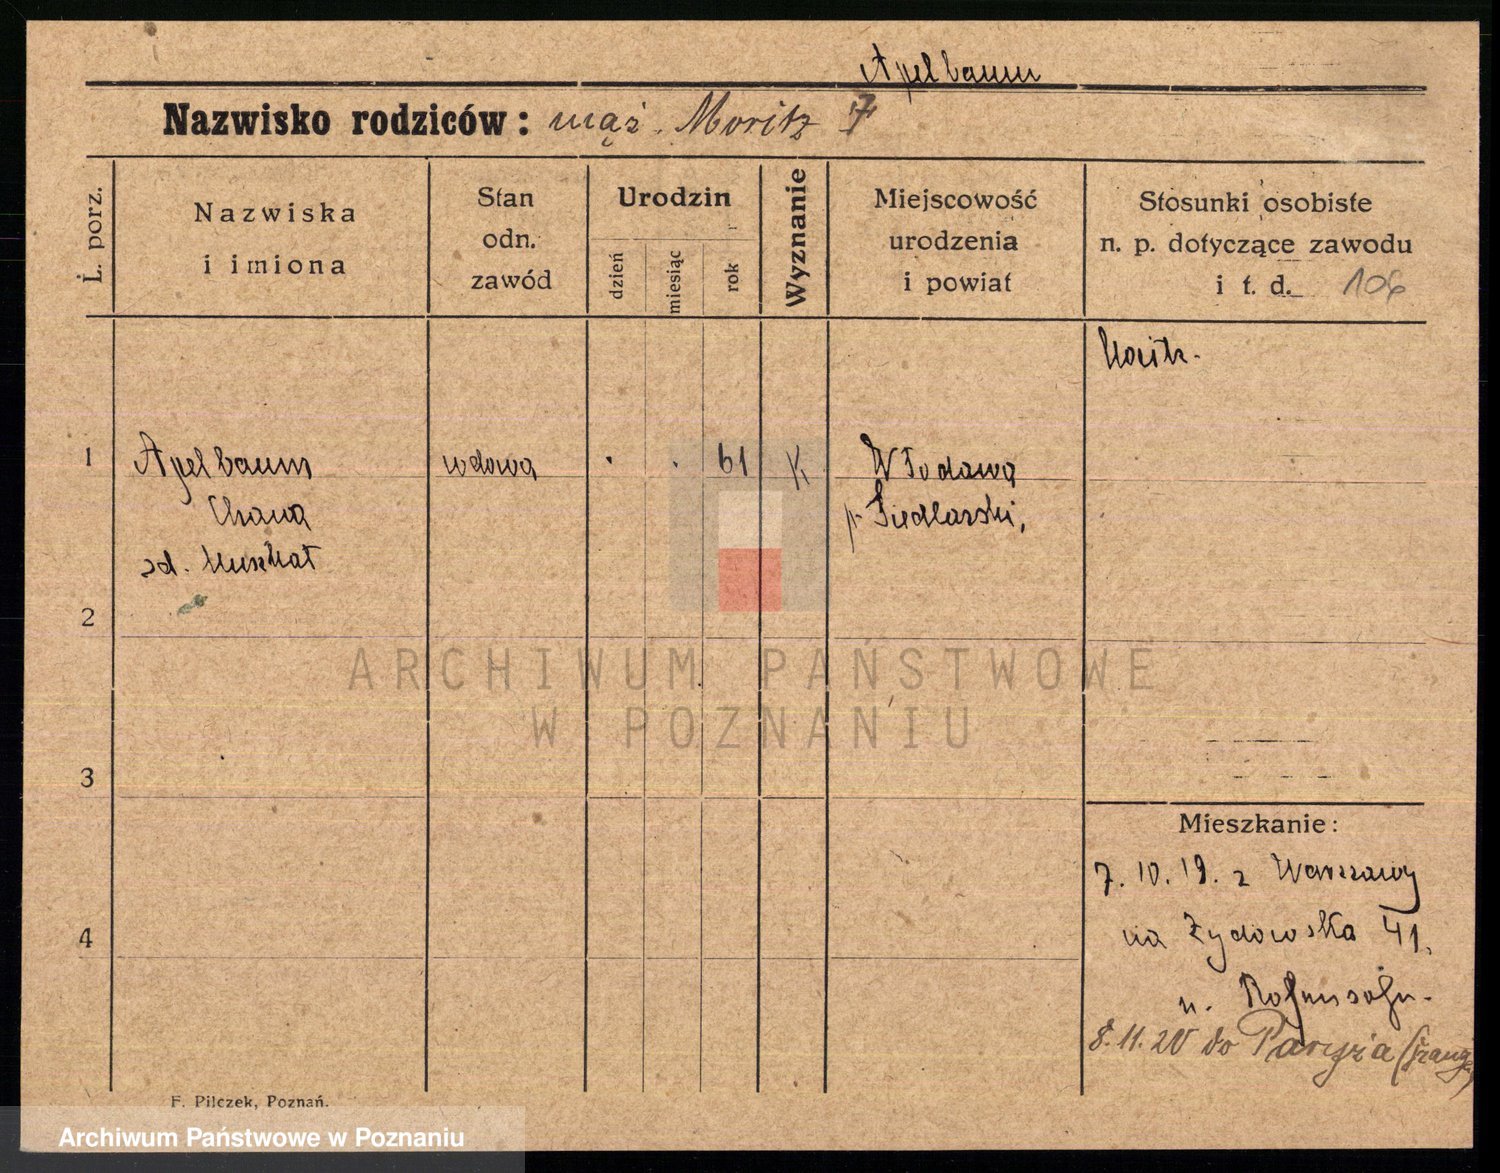 Apelbaum
Nazwisko rodziców: mąż. Moritz
L. porz.
Nazwiska
i imiona
Stan
odn.
zawód
Urodzin
dzień
miesiąc
rok
Wyznanie
Miejscowość
urodzenia
i powiat
Stosunki osobiste
n. p. dotyczące zawodu
i t. d. 106
1
Apelbaum
Chawa
zd.
wdowa
61
K
Włodawa
p.
2
3
4
Mieszkanie:
7. 10. 19. z Warszawy
na Żydowska 41.
8. 11. 20 do Paryża
F. Pilczek, Poznań.
ARCHIWUM PAŃSTWOWE
W POZNANIU
Archiwum Państwowe w Poznaniu